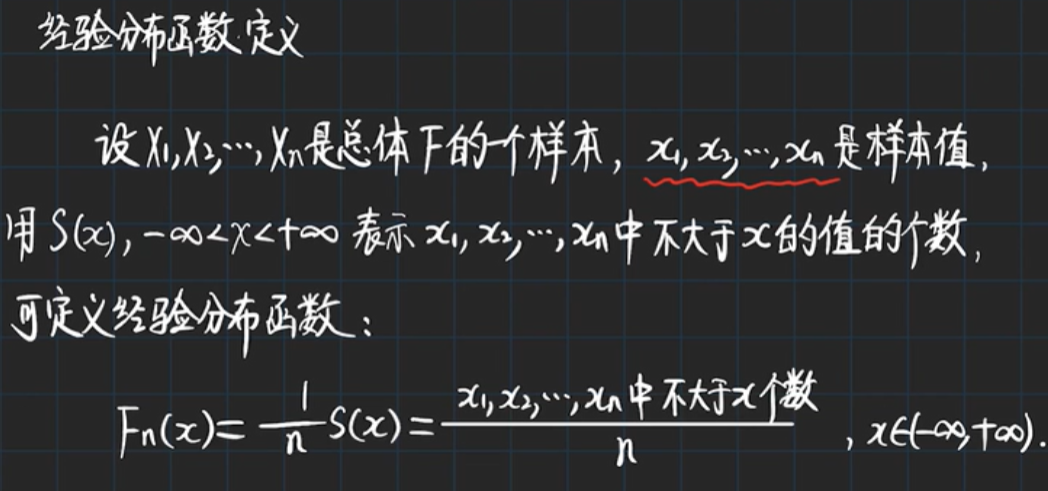 经验分布函数定义
设X₁,X₂,…,Xₙ是总体F的一个样本, x₁,x₂,…,xₙ是样本值,
用S(x), -∞<x<+∞ 表示 x₁,x₂,…,xₙ中不大于x的值的个数,
可定义经验分布函数:
Fₙ(x)= 1/n S(x)= x₁,x₂,…,xₙ中不大于x个数/n , x∈(-∞,+∞).